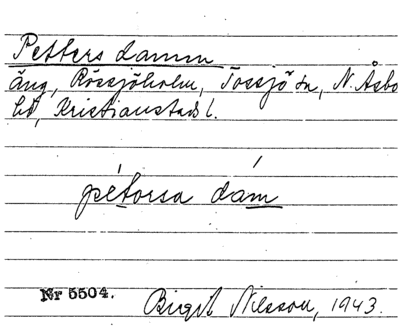 Petters damm
äng, Rössjöholm, Tossjö sn, N. Åsbo
hd, Kristianstads l.
pétorsa dám
Nr 5504.
Birgit Nilsson, 1943.